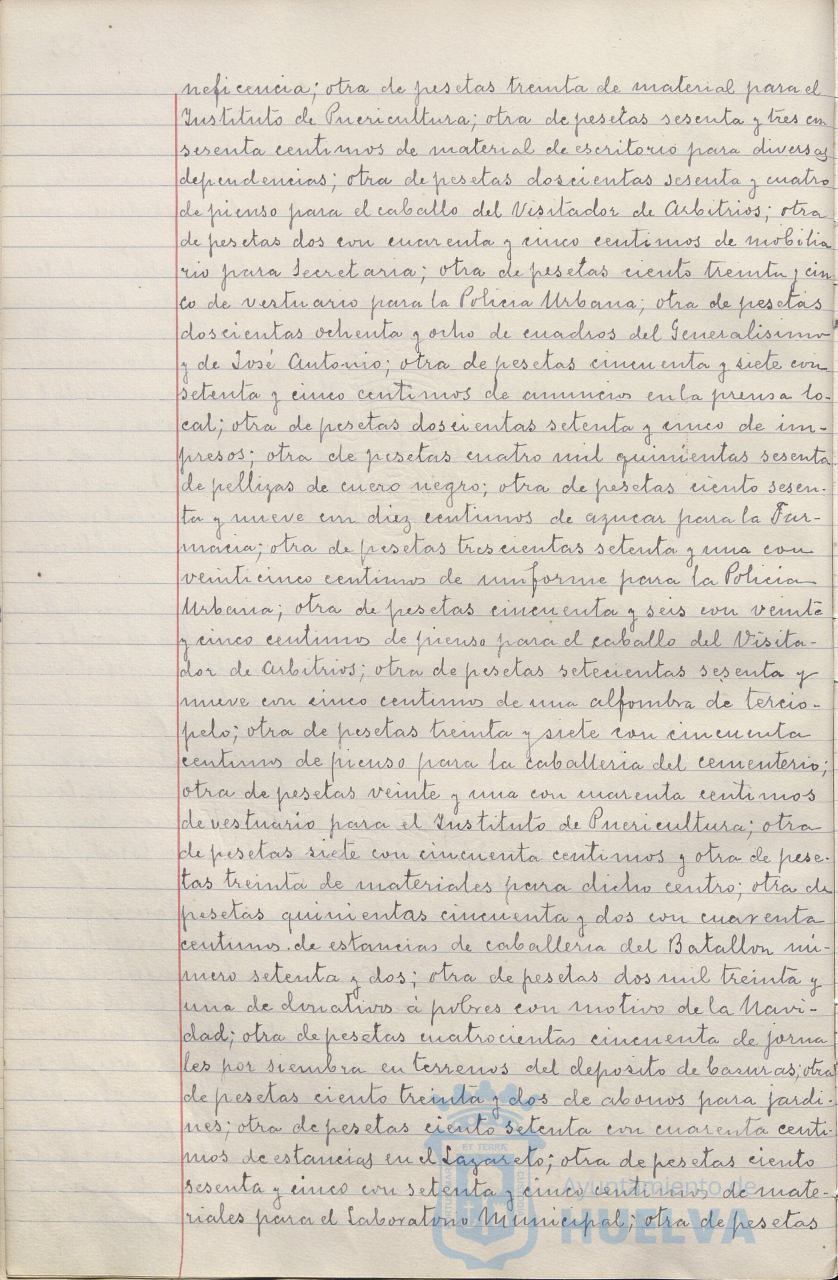 neficencia; otra de pesetas treinta de material para el
Instituto de Puericultura; otra de pesetas sesenta y tres con
sesenta centimos de material de escritorio para diversas
dependencias; otra de pesetas doscientas sesenta y cuatro
de pienso para el caballo del Visitador de Arbitrios; otra
de pesetas dos con cuarenta y cinco centimos de mobilia
rio para Secretaria; otra de pesetas ciento treinta y cin
co de vestuario para la Policia Urbana; otra de pesetas
doscientas ochenta y ocho de cuadros del Generalisimo
y de José Antonio; otra de pesetas cincuenta y siete con
setenta y cinco centimos de anuncios en la prensa lo-
cal; otra de pesetas doscientas setenta y cinco de im-
presos; otra de pesetas cuatro mil quinientas sesenta
de pellizas de cuero negro; otra de pesetas ciento sesen-
ta y nueve con diez centimos de azucar para la Far-
macia; otra de pesetas trescientas setenta y una con
veinticinco centimos de uniforme para la Policia
Urbana; otra de pesetas cincuenta y seis con veinte
y cinco centimos de pienso para el caballo del Visita-
dor de Arbitrios; otra de pesetas setecientas sesenta y
nueve con cinco centimos de una alfombra de tercio-
pelo; otra de pesetas treinta y siete con cincuenta
centimos de pienso para la caballeria del cementerio;
otra de pesetas veinte y una con cuarenta centimos
de vestuario para el Instituto de Puericultura; otra
de pesetas siete con cincuenta centimos y otra de pese-
tas treinta de materiales para dicho centro; otra de
pesetas quinientas cincuenta y dos con cuarenta
centimos de estancias de caballeria del Batallon nú-
mero setenta y dos; otra de pesetas dos mil treinta y
una de donativos á pobres con motivo de la Navi-
dad; otra de pesetas cuatrocientas cincuenta de jorna
les por siembra en terrenos del deposito de basuras; otra
de pesetas ciento treinta y dos de abonos para jardi-
nes; otra de pesetas ciento setenta con cuarenta centi-
mos de estancias en el Lazareto; otra de pesetas ciento
sesenta y cinco con setenta y cinco centimos de mate-
riales para el Laboratorio Municipal; otra de pesetas
ET TERRÆ
Ayuntamiento de
HUELVA